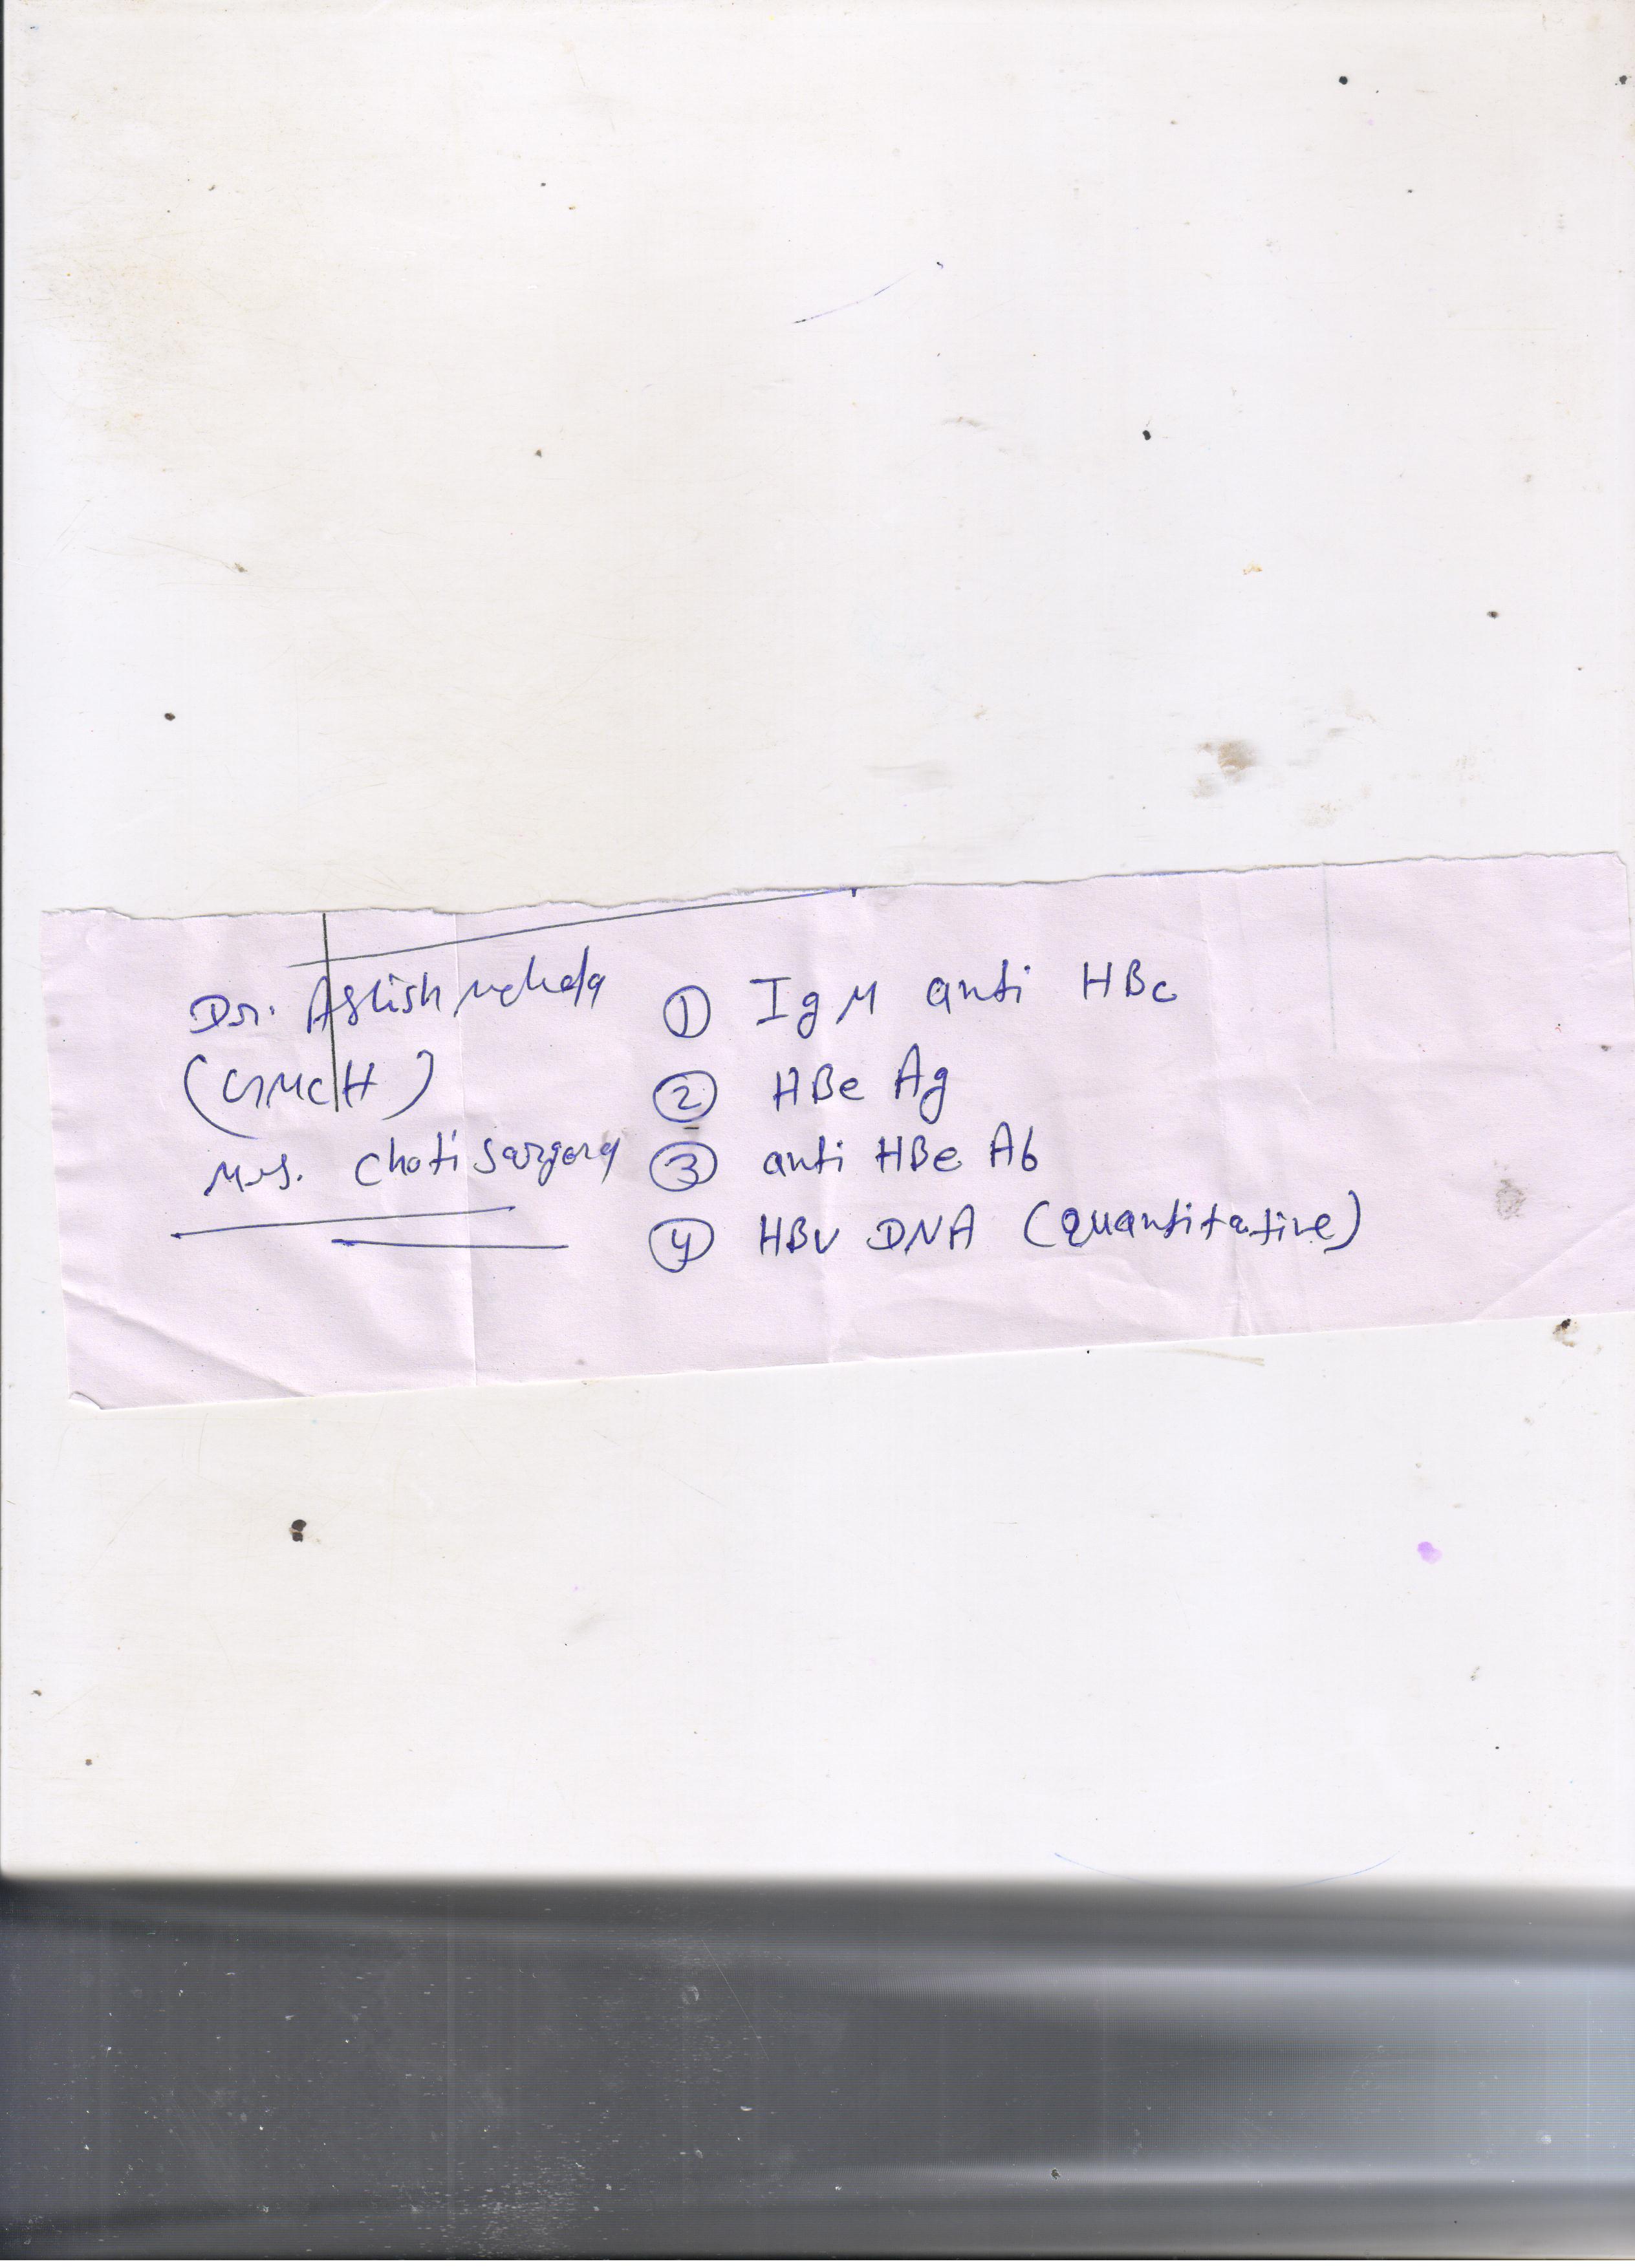 Dr. Ashish Mehda
(GMCH)
Mrs. Choti Sargara
① IgM anti HBc
② HBe Ag
③ anti HBe Ab
④ HBV DNA (quantitative)